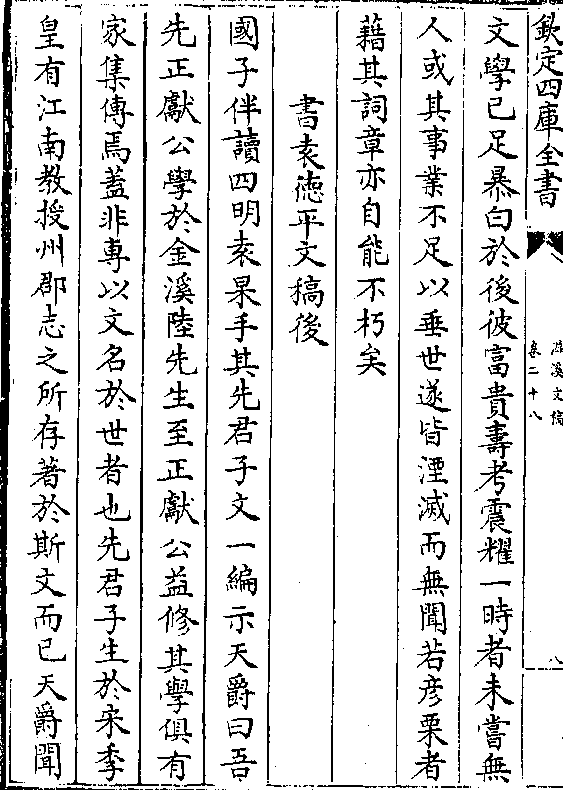 欽定四庫全書
滋溪文稿
卷二十八
八
文學已足暴白於後彼富貴壽考震耀一時者未嘗無
人或其事業不足以垂世遂皆湮滅而無聞若彦栗者
藉其詞章亦自能不朽矣
書袁徳平文稿後
國子伴讀四明袁杲手其先君子文一編示天爵曰吾
先正獻公學於金溪陸先生至正獻公益修其學俱有
家集傳焉蓋非專以文名於世者也先君子生於宋季
皇有江南教授州郡志之所存著於斯文而已天爵聞